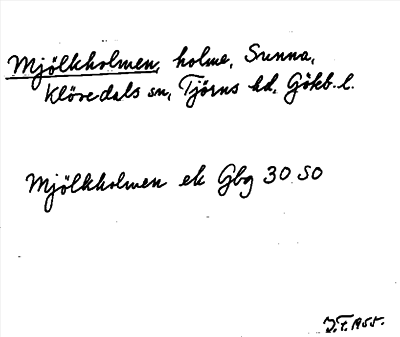 Mjölkholmen, holme, Sunna,
Klövedals sn, Tjörns hd, Gökb. l.
Mjölkholmen ek Gbg 30 SO
J.T. 1955.